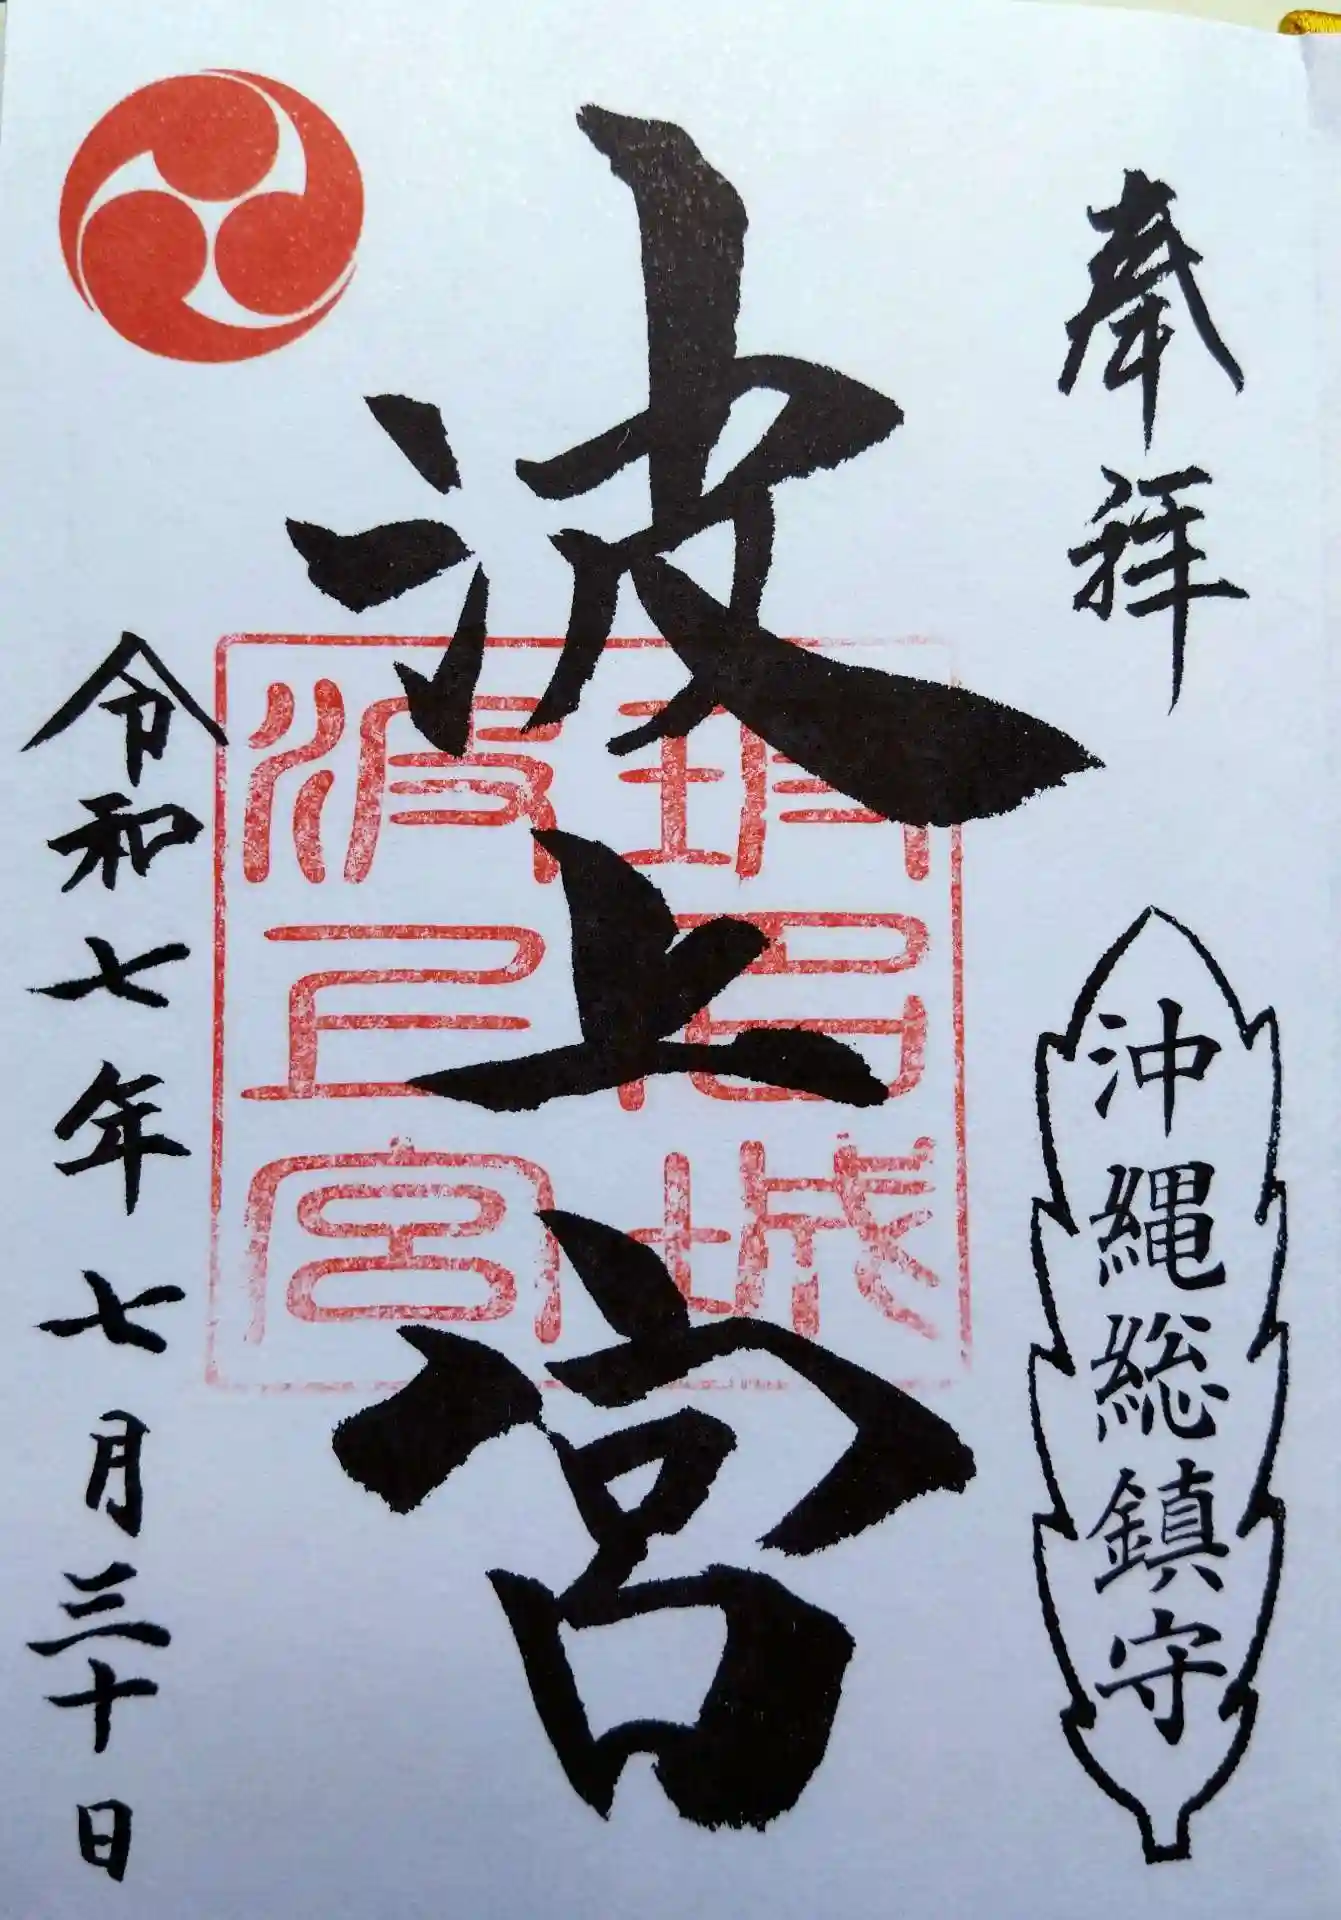 奉拝
沖縄総鎮守
波上宮
琉球城
波上宮
令和七年七月三十日